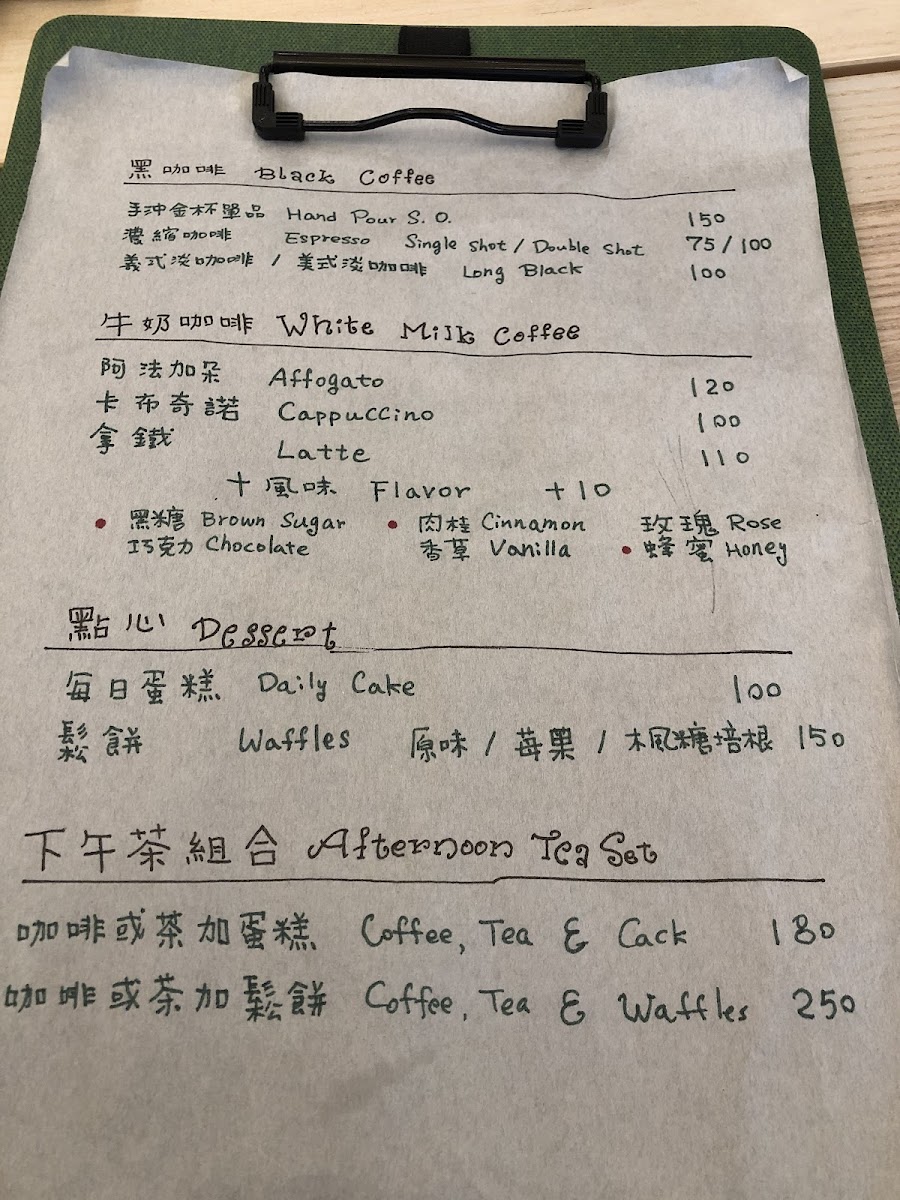 黑咖啡 Black Coffee
手沖金杯單品 Hand Pour S.O. 150
濃縮咖啡 Espresso Single Shot / Double Shot 75/100
義式淡咖啡 / 美式淡咖啡 Long Black 100
牛奶咖啡 White Milk Coffee
阿法加朵 Affogato 120
卡布奇諾 Cappuccino 100
拿鐵 Latte 110
+ 風味 Flavor +10
• 黑糖 Brown Sugar • 肉桂 Cinnamon 玫瑰 Rose
巧克力 Chocolate 香草 Vanilla • 蜂蜜 Honey
點心 Dessert
每日蛋糕 Daily Cake 100
鬆餅 Waffles 原味 / 莓果 / 楓糖培根 150
下午茶組合 Afternoon Tea Set
咖啡或茶加蛋糕 Coffee, Tea & Cack 180
咖啡或茶加鬆餅 Coffee, Tea & Waffles 250